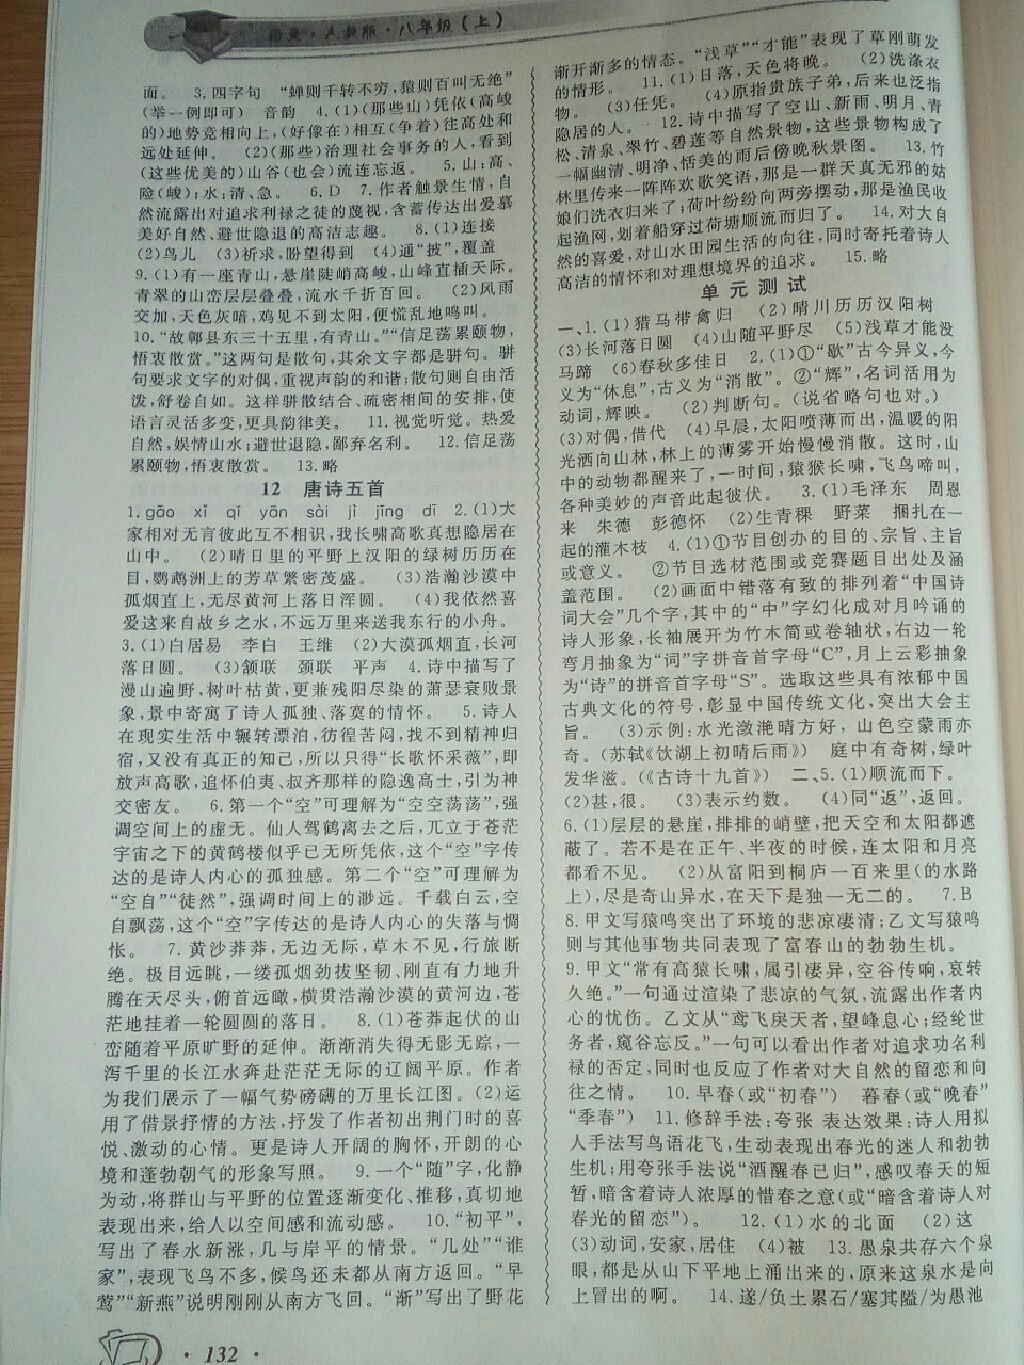 人教版·八年级(上)
面。 3.四字句 “蝉则千转不穷,猿则百叫无绝”
(举一例即可) 音韵 4.(1)(那些山)凭依(高峻
的)地势竞相向上,(好像在)相互(争着)往高处和
远处延伸。 (2)(那些)治理社会事务的人,看到
(这些优美的)山谷(也会)流连忘返。 5.山:高、
险(峻);水:清、急。 6.D 7.作者触景生情,自
然流露出对追求利禄之徒的蔑视,含蓄传达出爱慕
美好自然、避世隐退的高洁志趣。 8.(1)连接
(2)鸟儿 (3)祈求,盼望得到 (4)通“披”,覆盖
9.(1)有一座青山,悬崖陡峭高峻,山峰直插天际。
青翠的山峦层层叠叠,流水千折百回。 (2)风雨
交加,天色灰暗,鸡见不到太阳,便慌乱地鸣叫。
10.“故鄣县东三十五里,有青山。”“信足荡累颐物,
悟衷散赏。”这两句是散句,其余文字都是骈句。骈
句要求文字的对偶,重视声韵的和谐;散句则自由活
泼,舒卷自如。这样骈散结合、疏密相间的安排,使
语言灵活多变,更具韵律美。 11.视觉听觉。热爱
自然,娱情山水;避世退隐,鄙弃名利。 12.信足荡
累颐物,悟衷散赏。 13.略
12 唐诗五首
1.gāo xǐ qī yān sài jì jīng dī 2.(1)大
家相对无言彼此互不相识,我长啸高歌真想隐居在
山中。 (2)晴日里的平野上汉阳的绿树历历在
目,鹦鹉洲上的芳草繁密茂盛。 (3)浩瀚沙漠中
孤烟直上,无尽黄河上落日浑圆。 (4)我依然喜
爱这来自故乡之水,不远万里来送我东行的小舟。
3.(1)白居易 李白 王维 (2)大漠孤烟直,长河
落日圆。 (3)颔联 颈联 平声 4.诗中描写了
漫山遍野,树叶枯黄,更兼残阳尽染的萧瑟衰败景
象,景中寄寓了诗人孤独、落寞的情怀。 5.诗人
在现实生活中辗转漂泊,彷徨苦闷,找不到精神归
宿,又没有真正的知己,所以只得“长歌怀采薇”,即
放声高歌,追怀伯夷、叔齐那样的隐逸高士,引为神
交密友。 6.第一个“空”可理解为“空空荡荡”,强
调空间上的虚无。仙人驾鹤离去之后,兀立于苍茫
宇宙之下的黄鹤楼似乎已无所凭依,这个“空”字传
达的是诗人内心的孤独感。第二个“空”可理解为
“空自”“徒然”,强调时间上的渺远。千载白云,空
自飘荡,这个“空”字传达的是诗人内心的失落与惆
怅。 7.黄沙莽莽,无边无际,草木不见,行旅断
绝。极目远眺,一缕孤烟劲拔坚韧、刚直有力地升
腾在天尽头,俯首远瞰,横贯浩瀚沙漠的黄河边,苍
茫地挂着一轮圆圆的落日。 8.(1)苍莽起伏的山
峦随着平原旷野的延伸。渐渐消失得无影无踪,一
泻千里的长江水奔赴茫茫无际的辽阔平原。作者
为我们展示了一幅气势磅礴的万里长江图。(2)运
用了借景抒情的方法,抒发了作者初出荆门时的喜
悦、激动的心情。更是诗人开阔的胸怀,开朗的心
境和蓬勃朝气的形象写照。 9.一个“随”字,化静
为动,将群山与平野的位置逐渐变化、推移,真切地
表现出来,给人以空间感和流动感。 10.“初平”,
写出了春水新涨,几与岸平的情景。“几处”“谁
家”,表现飞鸟不多,候鸟还未都从南方返回。“早
莺”“新燕”说明刚刚从南方飞回。“渐”写出了野花
渐开渐多的情态。“浅草”“才能”表现了草刚萌发
的情形。 11.(1)日落,天色将晚。 (2)洗涤衣
物。 (3)任凭。 (4)原指贵族子弟,后来也泛指
隐居的人。 12.诗中描写了空山、新雨、明月、青
松、清泉、翠竹、碧莲等自然景物,这些景物构成了
一幅幽清、明净、恬美的雨后傍晚秋景图。 13.竹
林里传来一阵阵欢歌笑语,那是一群天真无邪的姑
娘们洗衣归来了;荷叶纷纷向两旁摆动,那是渔民收
起渔网,划着船穿过荷塘顺流而归了。 14.对大自
然的喜爱,对山水田园生活的向往,同时寄托着诗人
高洁的情怀和对理想境界的追求。 15.略
单元测试
一、1.(1)猎马带禽归 (2)晴川历历汉阳树
(3)长河落日圆 (4)山随平野尽 (5)浅草才能没
马蹄 (6)春秋多佳日 2.(1)①“歇”古今异义,今
义为“休息”,古义为“消散”。②“辉”,名词活用为
动词,辉映。 (2)判断句。(说省略句也对。)
(3)对偶,借代 (4)早晨,太阳喷薄而出,温暖的阳
光洒向山林,林上的薄雾开始慢慢消散。这时,山
中的动物都醒来了,一时间,猿猴长啸,飞鸟啼叫,
各种美妙的声音此起彼伏。 3.(1)毛泽东 周恩
来 朱德 彭德怀 (2)生青稞 野菜 捆扎在一
起的灌木枝 4.(1)①节目创办的目的、宗旨、主旨
或意义。 ②节目选材范围或竞赛题目出处及涵
盖范围。 (2)画面中错落有致的排列着“中国诗
词大会”几个字,其中的“中”字幻化成对月吟诵的
诗人形象,长袖展开为竹木简或卷轴状,右边一轮
弯月抽象为“词”字拼音首字母“C”,月上云彩抽象
为“诗”的拼音首字母“S”。选取这些具有浓郁中国
古典文化的符号,彰显中国传统文化,突出大会主
旨。 (3)示例:水光潋滟晴方好,山色空蒙雨亦
奇。(苏轼《饮湖上初晴后雨》) 庭中有奇树,绿叶
发华滋。(《古诗十九首》) 二、5.(1)顺流而下。
(2)甚,很。 (3)表示约数。 (4)同“返”,返回。
6.(1)层层的悬崖,排排的峭壁,把天空和太阳都遮
蔽了。若不是在正午、半夜的时候,连太阳和月亮
都看不见。 (2)从富阳到桐庐一百来里(的水路
上),尽是奇山异水,在天下是独一无二的。 7.B
8.甲文写猿鸣突出了环境的悲凉凄清;乙文写猿鸣
则与其他事物共同表现了富春山的勃勃生机。
9.甲文“常有高猿长啸,属引凄异,空谷传响,哀转
久绝。”一句通过渲染了悲凉的气氛,流露出作者内
心的忧伤。乙文从“鸢飞戾天者,望峰息心;经纶世
务者,窥谷忘反。”一句可以看出作者对追求功名利
禄的否定,同时也反应了作者对大自然的留恋和向
往之情。 10.早春(或“初春”) 暮春(或“晚春”
“季春”) 11.修辞手法:夸张 表达效果:诗人用拟
人手法写鸟语花飞,生动表现出春光的迷人和勃勃
生机;用夸张手法说“酒醒春已归”,感叹春天的短
暂,暗含着诗人浓厚的惜春之意(或“暗含着诗人对
春光的留恋”)。 12.(1)水的北面 (2)这
(3)动词,安家,居住 (4)被 13.愚泉共存六个泉
眼,都是从山下平地上涌出来的,原来这泉水是向
上冒出的啊。 14.遂/负土累石/塞其隘/为愚池
·132·